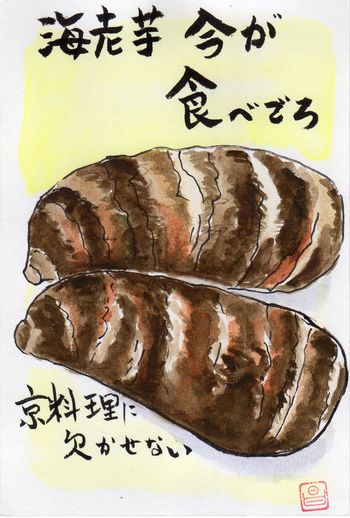 海老芋 今が
食べごろ
京料理に
欠かせない
昌